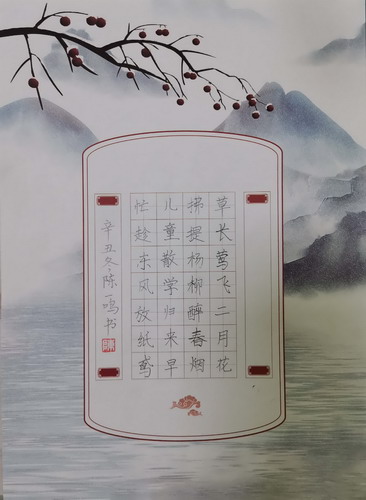 草长莺飞二月花
拂提杨柳醉春烟
儿童散学归来早
忙趁东风放纸鸢
辛丑冬陈一鸣书